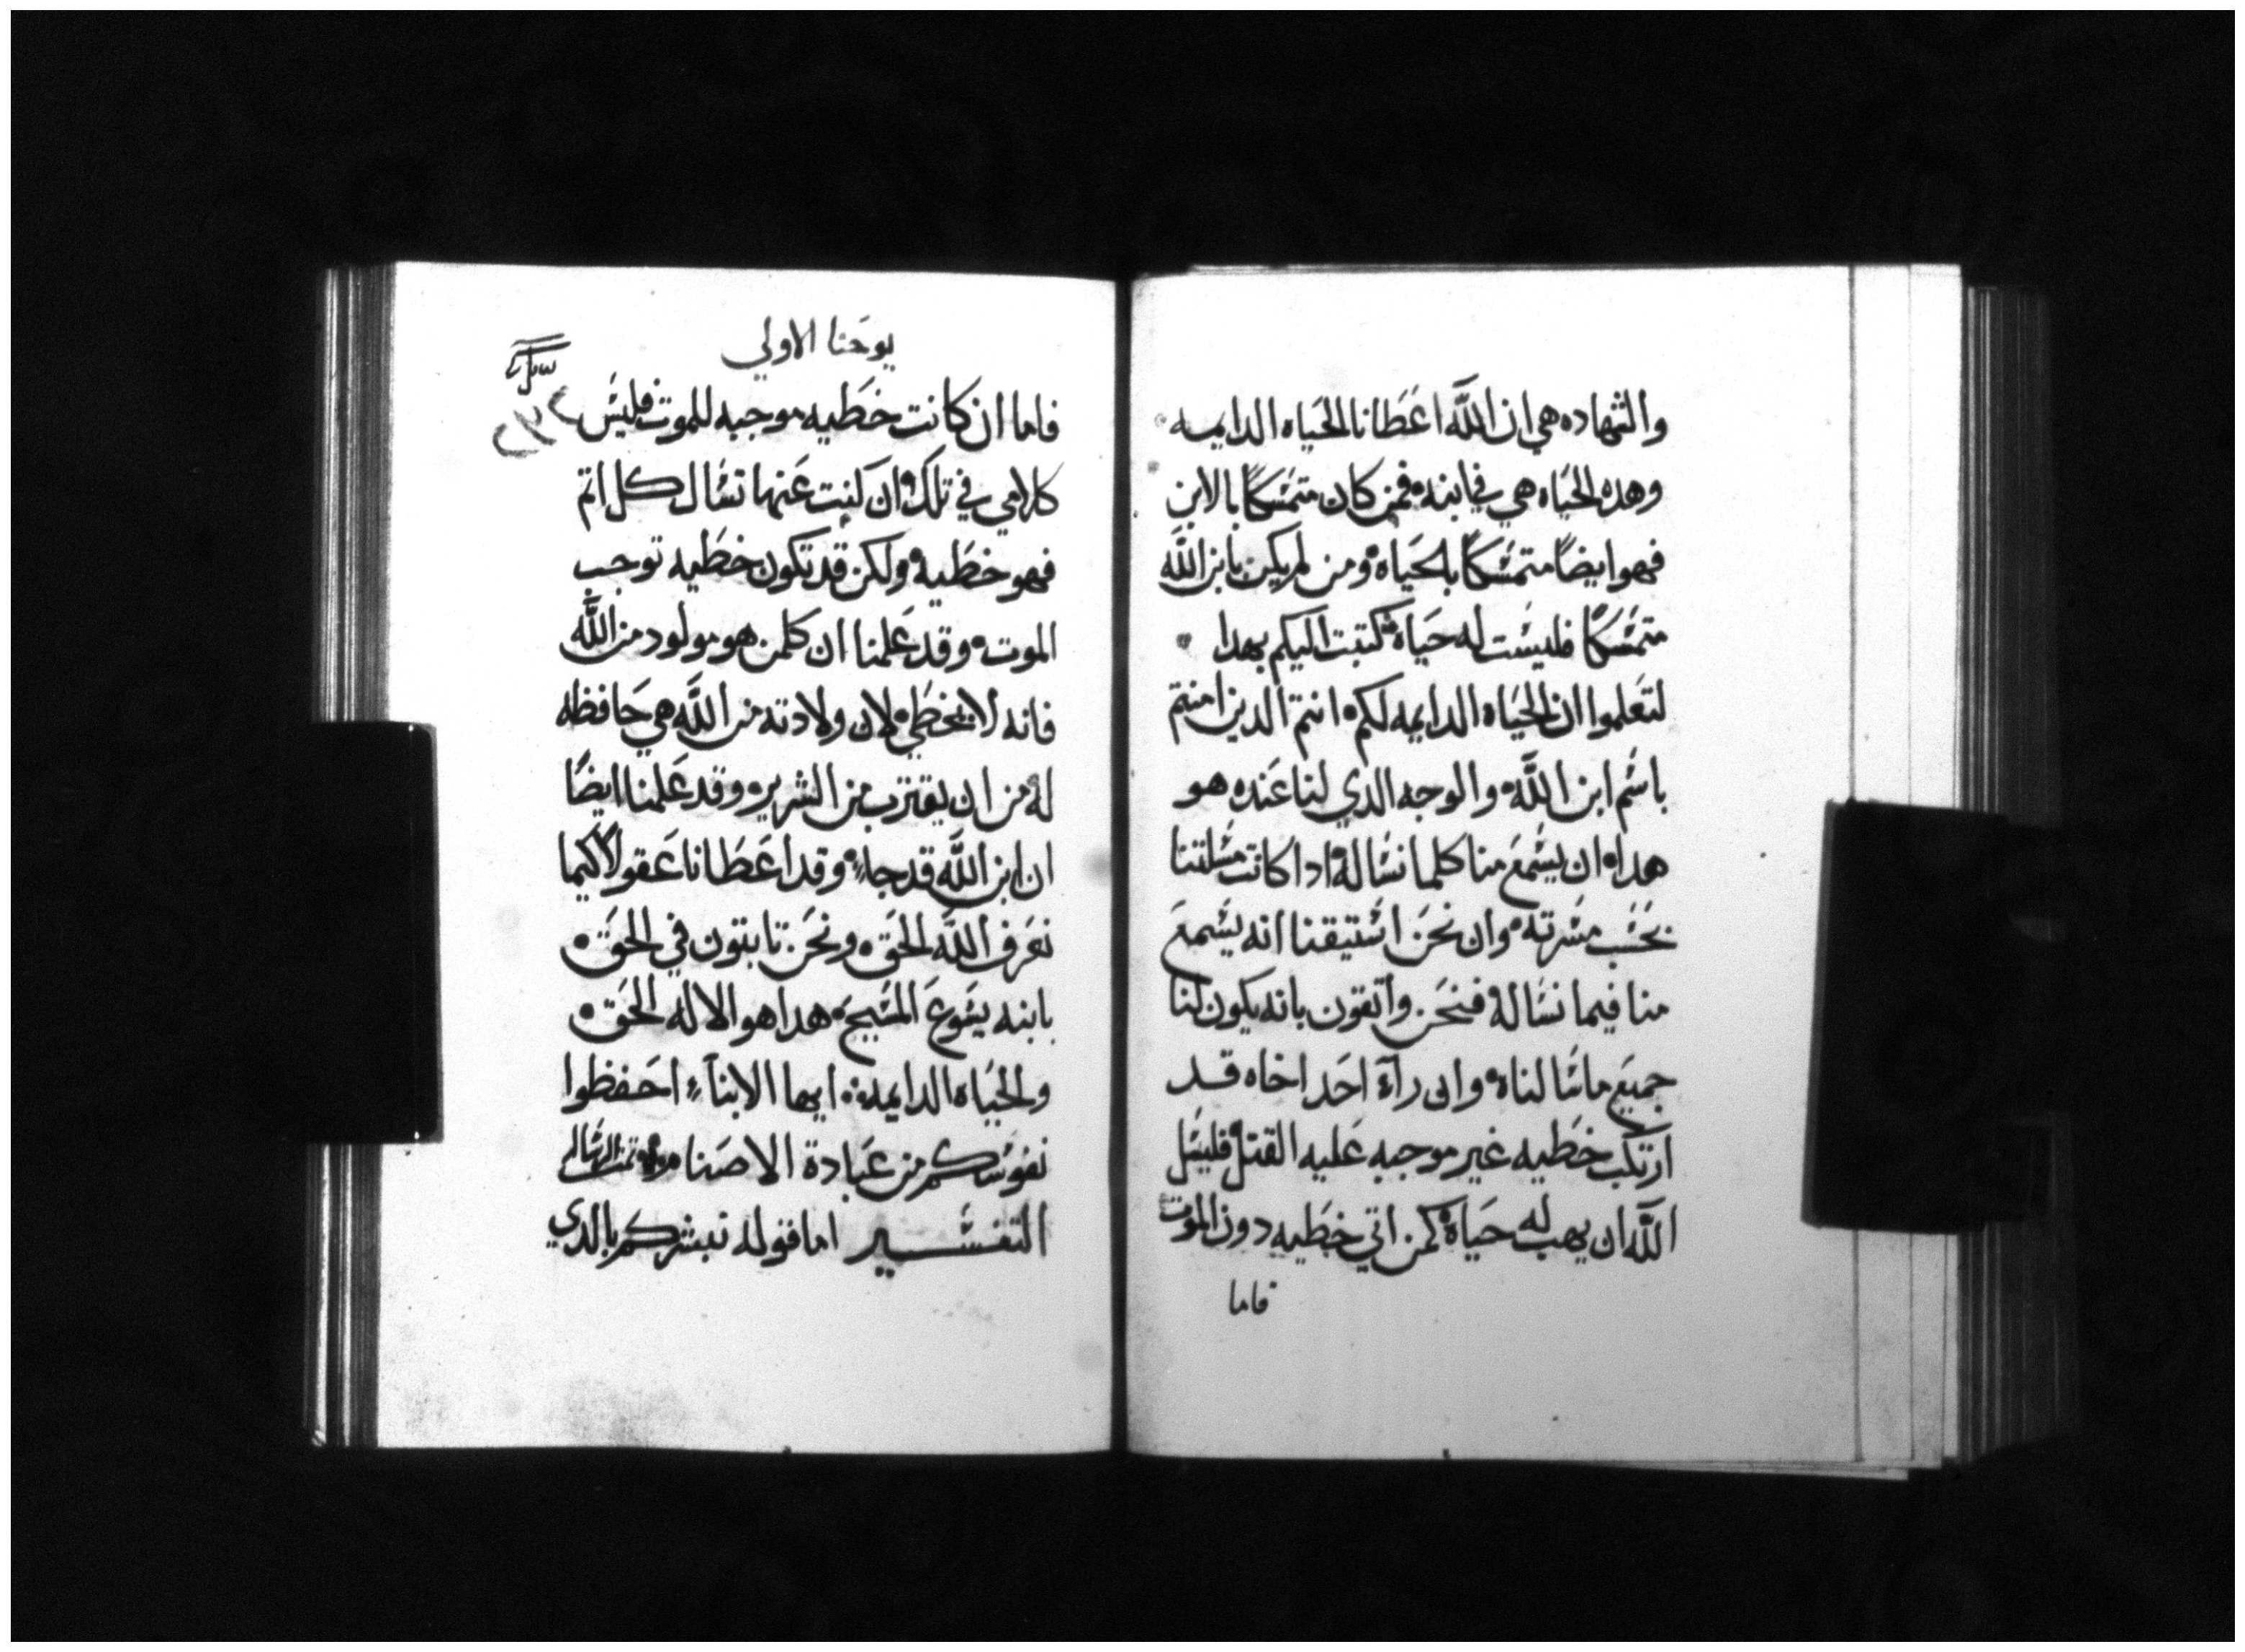 والشهاده هي ان الله اعطانا الحياه الدايمه
وهده الحياه هي في ابنه فمن كان متمسكًا بالابن
فهو ايضًا متمسكًا بالحياه ومن لم يكن بابن الله
متمسكًا فليست له حياة كتبت اليكم بهدا
لتعلموا ان الحياه الدايمه لكم انتم الدين امنتم
باسم ابن الله والوجه الدي لنا عنده هو
هدا ان يسمع منا كلما نساله ادا كانت مسلتنا
بحسب مسرته وان نحن استيقنا انه يسمع
منا فيما نساله فنحن واتقون بانه يكون لنا
جميع ما سالناه وان رآء احد اخاه قد
ارتكب خطيه غير موجبه عليه القتل فليسل
الله ان يهب له حياة كمن اتي خطيه دون الموت
فاما
يوحنا الاولي
فاما ان كانت خطيه موجبه للموت فليس
كلامي في تلك وان كنت عنها تسال كل اتم
فهو خطيه ولكن قد تكون خطيه توجب
الموت وقد علمنا ان كلمن هو مولود من الله
فانه لا يخطي لان ولادته من الله هي حافظه
له من ان يقترب من الشرير وقد علمنا ايضًا
ان ابن الله قد جاء وقد اعطانا عقولًا كيما
نعرف الله الحق ونحن تابتون في الحق
بابنه يسوع المسيح هدا هو الاله الحق
والحياه الدايمه ايها الابناء احفظوا
نفوسكم من عبادة الاصنام تمت الرساله
التفسير اما قوله نبشركم بالدي